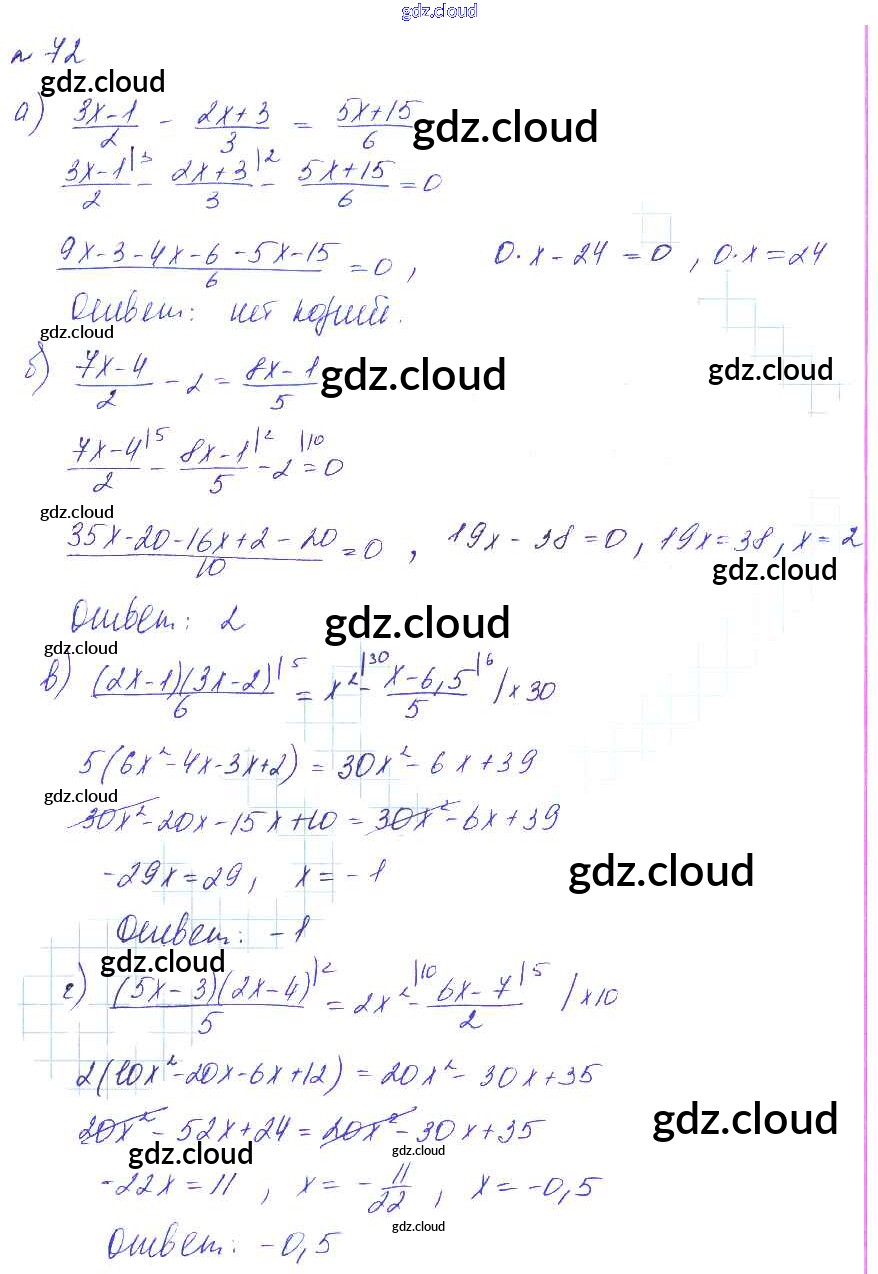 gdz.cloud
№ 72
gdz.cloud
а) (3x-1)/2 - (2x+3)/3 = (5x+15)/6 gdz.cloud
(3x-1|3)/2 - (2x+3|2)/3 - (5x+15)/6 = 0
(9x-3-4x-6-5x-15)/6 = 0 , 0·x-24 = 0 , 0·x=24
Ответ: нет корней.
gdz.cloud
б) (7x-4)/2 - 2 = (8x-1)/5 gdz.cloud gdz.cloud
(7x-4|5)/2 - (8x-1|2)/5 - 2|10 = 0
gdz.cloud
(35x-20-16x+2-20)/10 = 0 , 19x-38=0, 19x=38, x=2
gdz.cloud
Ответ: 2 gdz.cloud
gdz.cloud
в) ((2x-1)(3x-2)|5)/6 = x²|30 - (x-6,5|6)/5 /×30
5(6x²-4x-3x+2) = 30x²-6x+39
gdz.cloud
30x²-20x-15x+10 = 30x²-6x+39
-29x=29, x=-1 gdz.cloud
Ответ: -1
gdz.cloud
г) ((5x-3)(2x-4)|2)/5 = 2x²|10 - (6x-7|5)/2 /×10
2(10x²-20x-6x+12) = 20x²-30x+35
20x²-52x+24 = 20x²-30x+35 gdz.cloud
gdz.cloud gdz.cloud
-22x=11 , x=-11/22 , x=-0,5
gdz.cloud
Ответ: -0,5